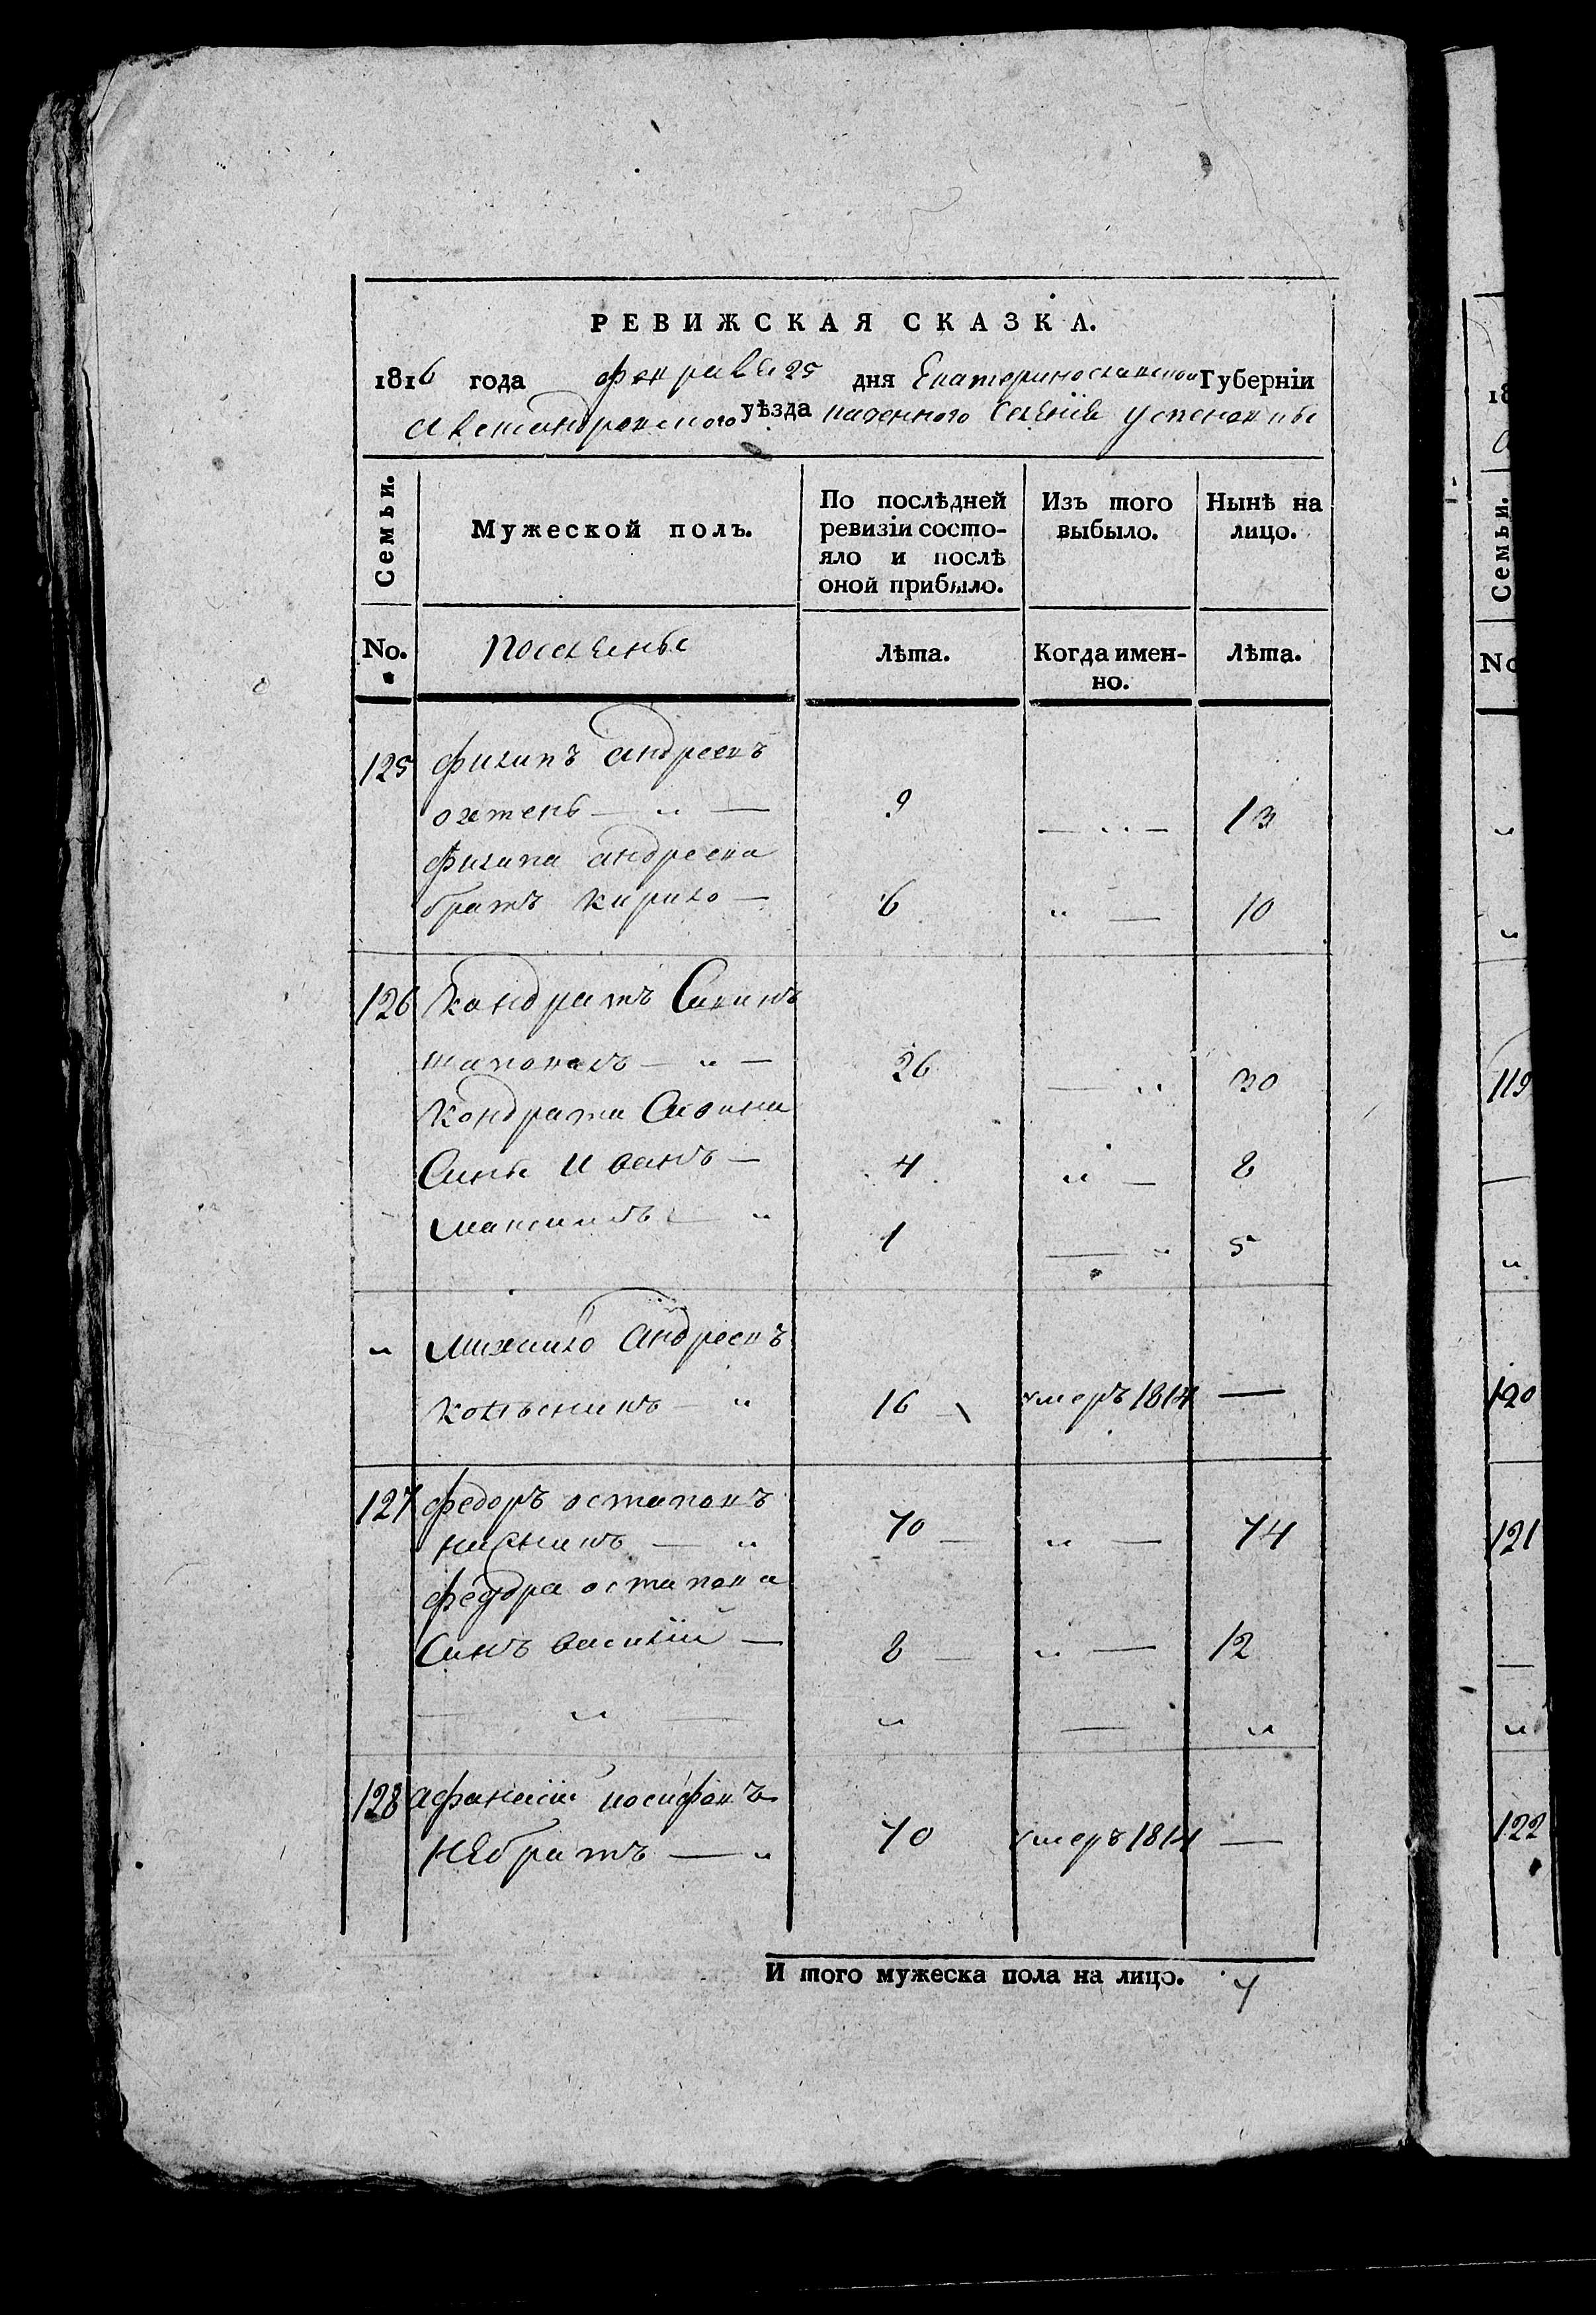 РЕВИЖСКАЯ СКАЗКА.
1816 года февраля 25 дня Екатеринославской Губерніи
Александровского уѣзда казенного селенія Успеновки
Семьи.
Мужеской полъ.
По послѣдней
ревизіи состо-
яло и послѣ
оной прибыло.
Изъ того
выбыло.
Нынѣ на
лицо.
No.
поселяне
Лѣта.
Когда имен-
но.
Лѣта.
125 филипъ андреевъ
9 — „ — 13
филипа андреева
братъ кирило — 6 „ — 10
126 Кондратъ Савинъ
шаповалъ — „ — 26 — „ 30
Кондрата Савина
Сины Иванъ — 4 „ — 8
максимъ — „ 1 — „ 5
„ михайло андреевъ
колѣсникъ — „ 16 умеръ 1814 —
127 федоръ остаповъ
— „ 70 — „ — 74
федора остапова
Синъ василій — 8 — „ — 12
— „ — „ — „
128 афанасій иосифовъ
Небратъ — „ 70 умеръ 1814 —
И того мужеска пола на лицо. 7
18
Семьи.
No
119
120
121
122